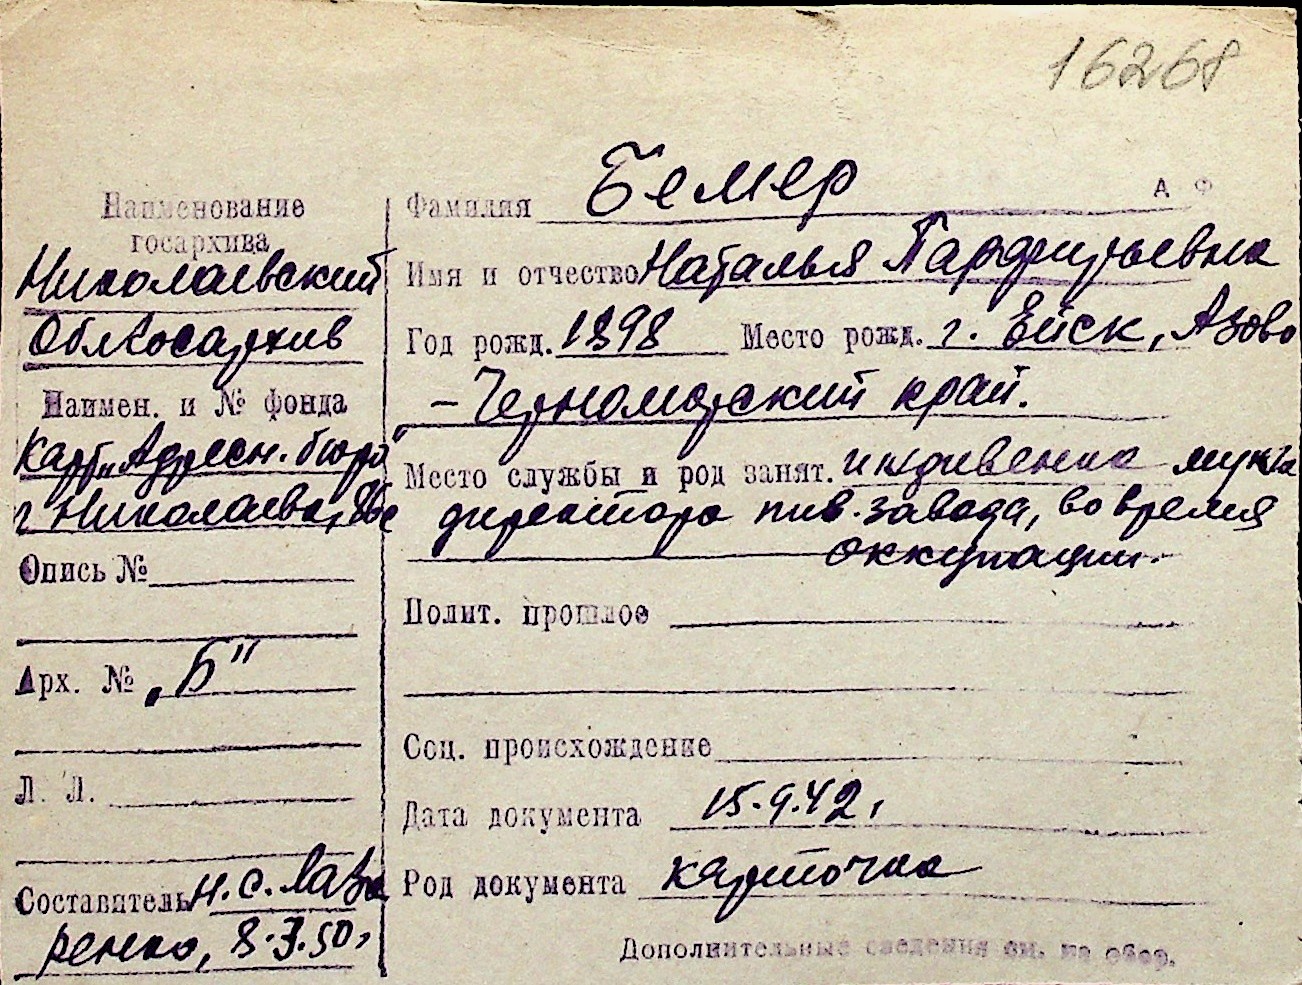 16268
А Ф
Наименование
госархива
Николаевский
Облгосархив
Наимен. и № фонда
Карт. „Адресн. бюро"
г. Николаева,
Опись №
Арх. № „Б"
Л. Л.
Составитель Н. С. Лавре
ренко, 8.3.50,
Фамилия Бемер
Имя и отчество Наталья Парфирьевна
Год рожд. 1898 Место рожд. г. Ейск, Азово
-Черноморский край.
Место службы и род занят. иждивенка мужа
директора пив. завода, во время
оккупации.
Полит. прошлое
Соц. происхождение
Дата документа 15.9.42,
Род документа карточка
Дополнительные сведения см. на обор.